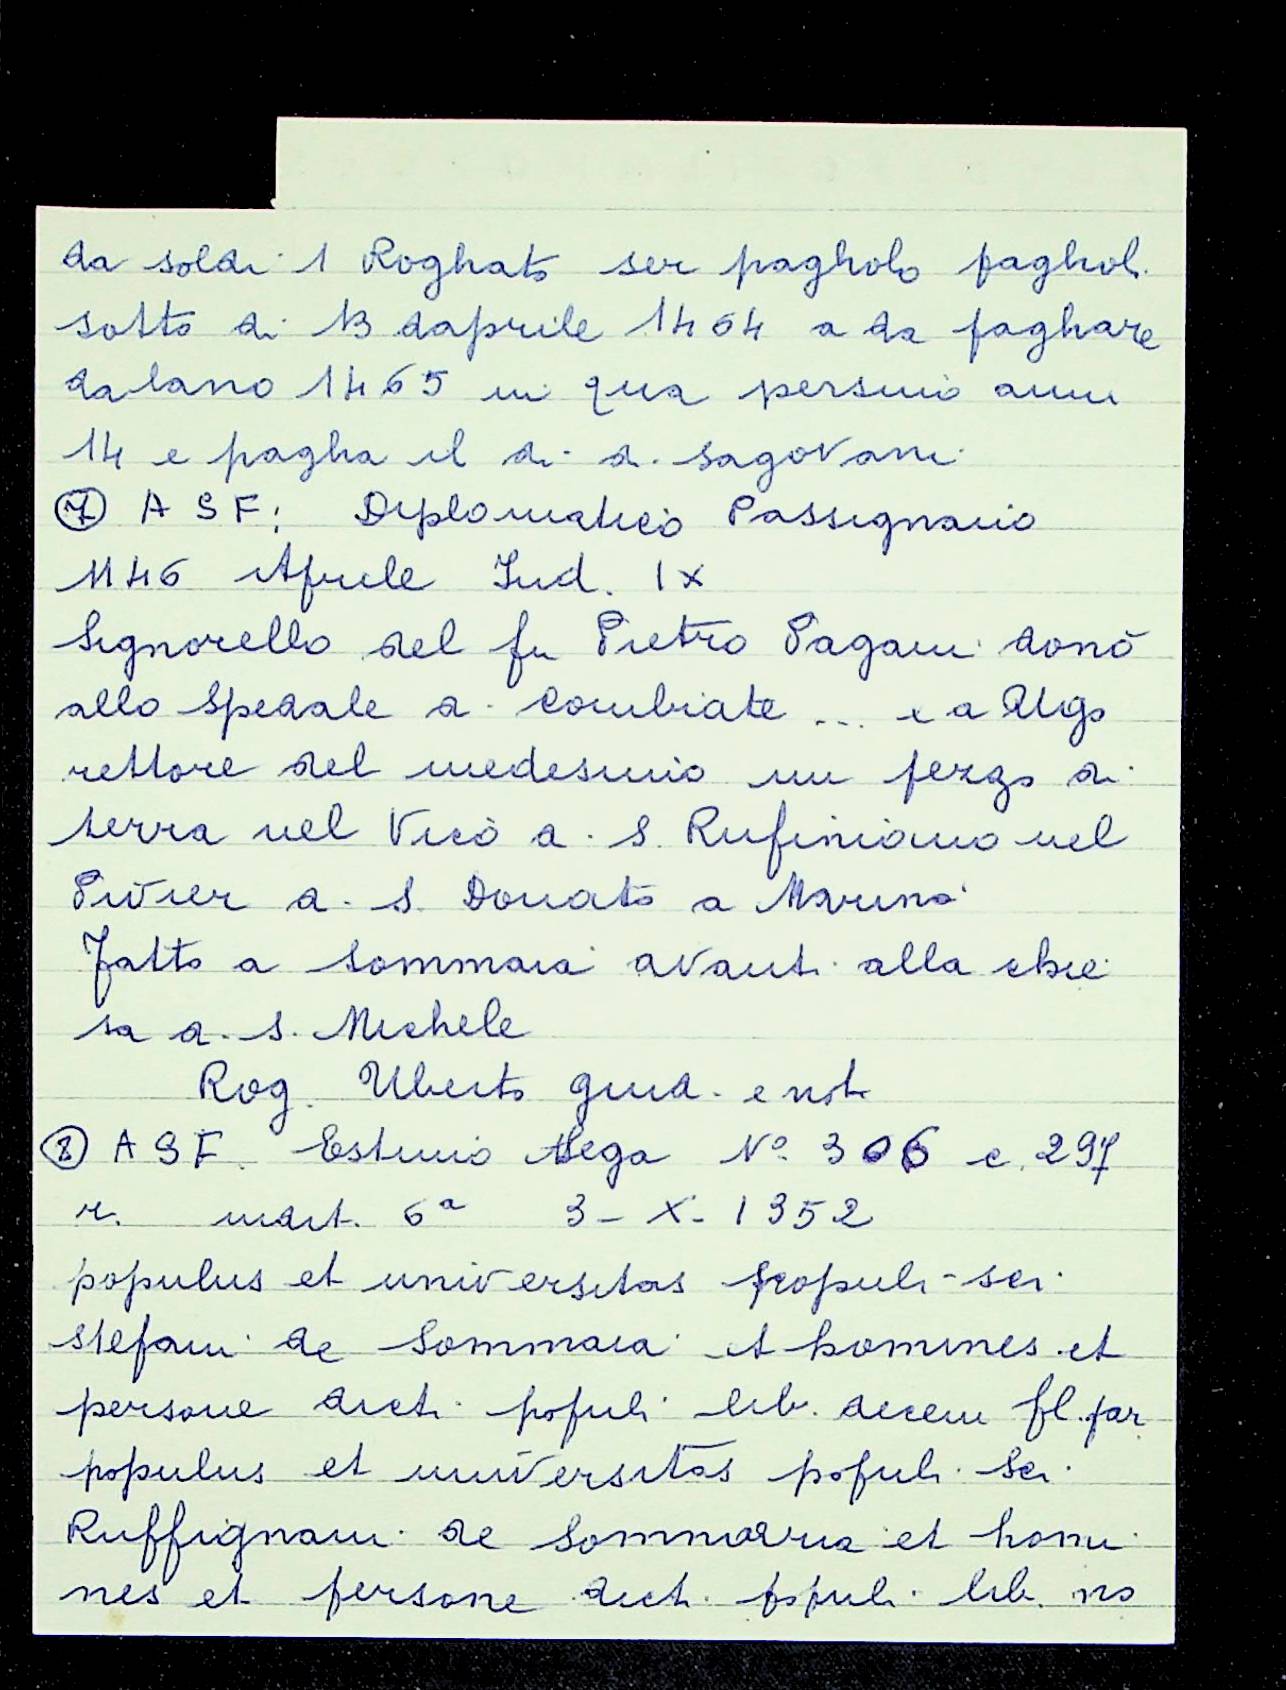 da soldi 1 Roghato ser pagholo paghol.
sotto di 13 daprile 1464 a da paghare
dalano 1465 in qua persino anni
14 e pagha il di di sagovani
⑦ A S F: Diplomatico Passignano
1146 Aprile Ind. IX
Signorello del fu Pietro Pagani donò
allo Spedale di Combiate ... e a Ugo
rettore del medesimo un pezzo di
terra nel Vico di S. Rufiniano nel
Pivier di S. Donato a
Fatto a Sommaia avanti alla chie
sa di S. Michele
Rog. Uberto giud. e not.
⑧ A S F. Estimo Sega Nº 306 c. 297
r. mart. 6ª 3 - X - 1352
populus et universitas populi sci
Stefani de Sommaia et homines et
persone dicti populi lib. decem fl. par
populus et universitas populi sci
Ruffignani de Sommaria et homi
nes et persone dicti populi lib. no